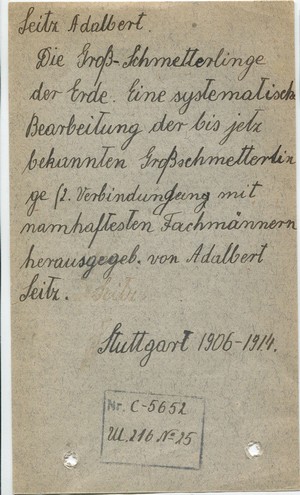 Seitz Adalbert.
Die Groß-Schmetterlinge
der Erde. Eine systematisch
Bearbeitung der bis jetz
bekannten Großschmetterlin
ge /2. Verbindungung mit
namhaftesten Fachmännern
herausgegeb. von Adalbert
Seitz.
Stuttgart 1906-1914.
Nr. C-5652
Ul. 216 No 25